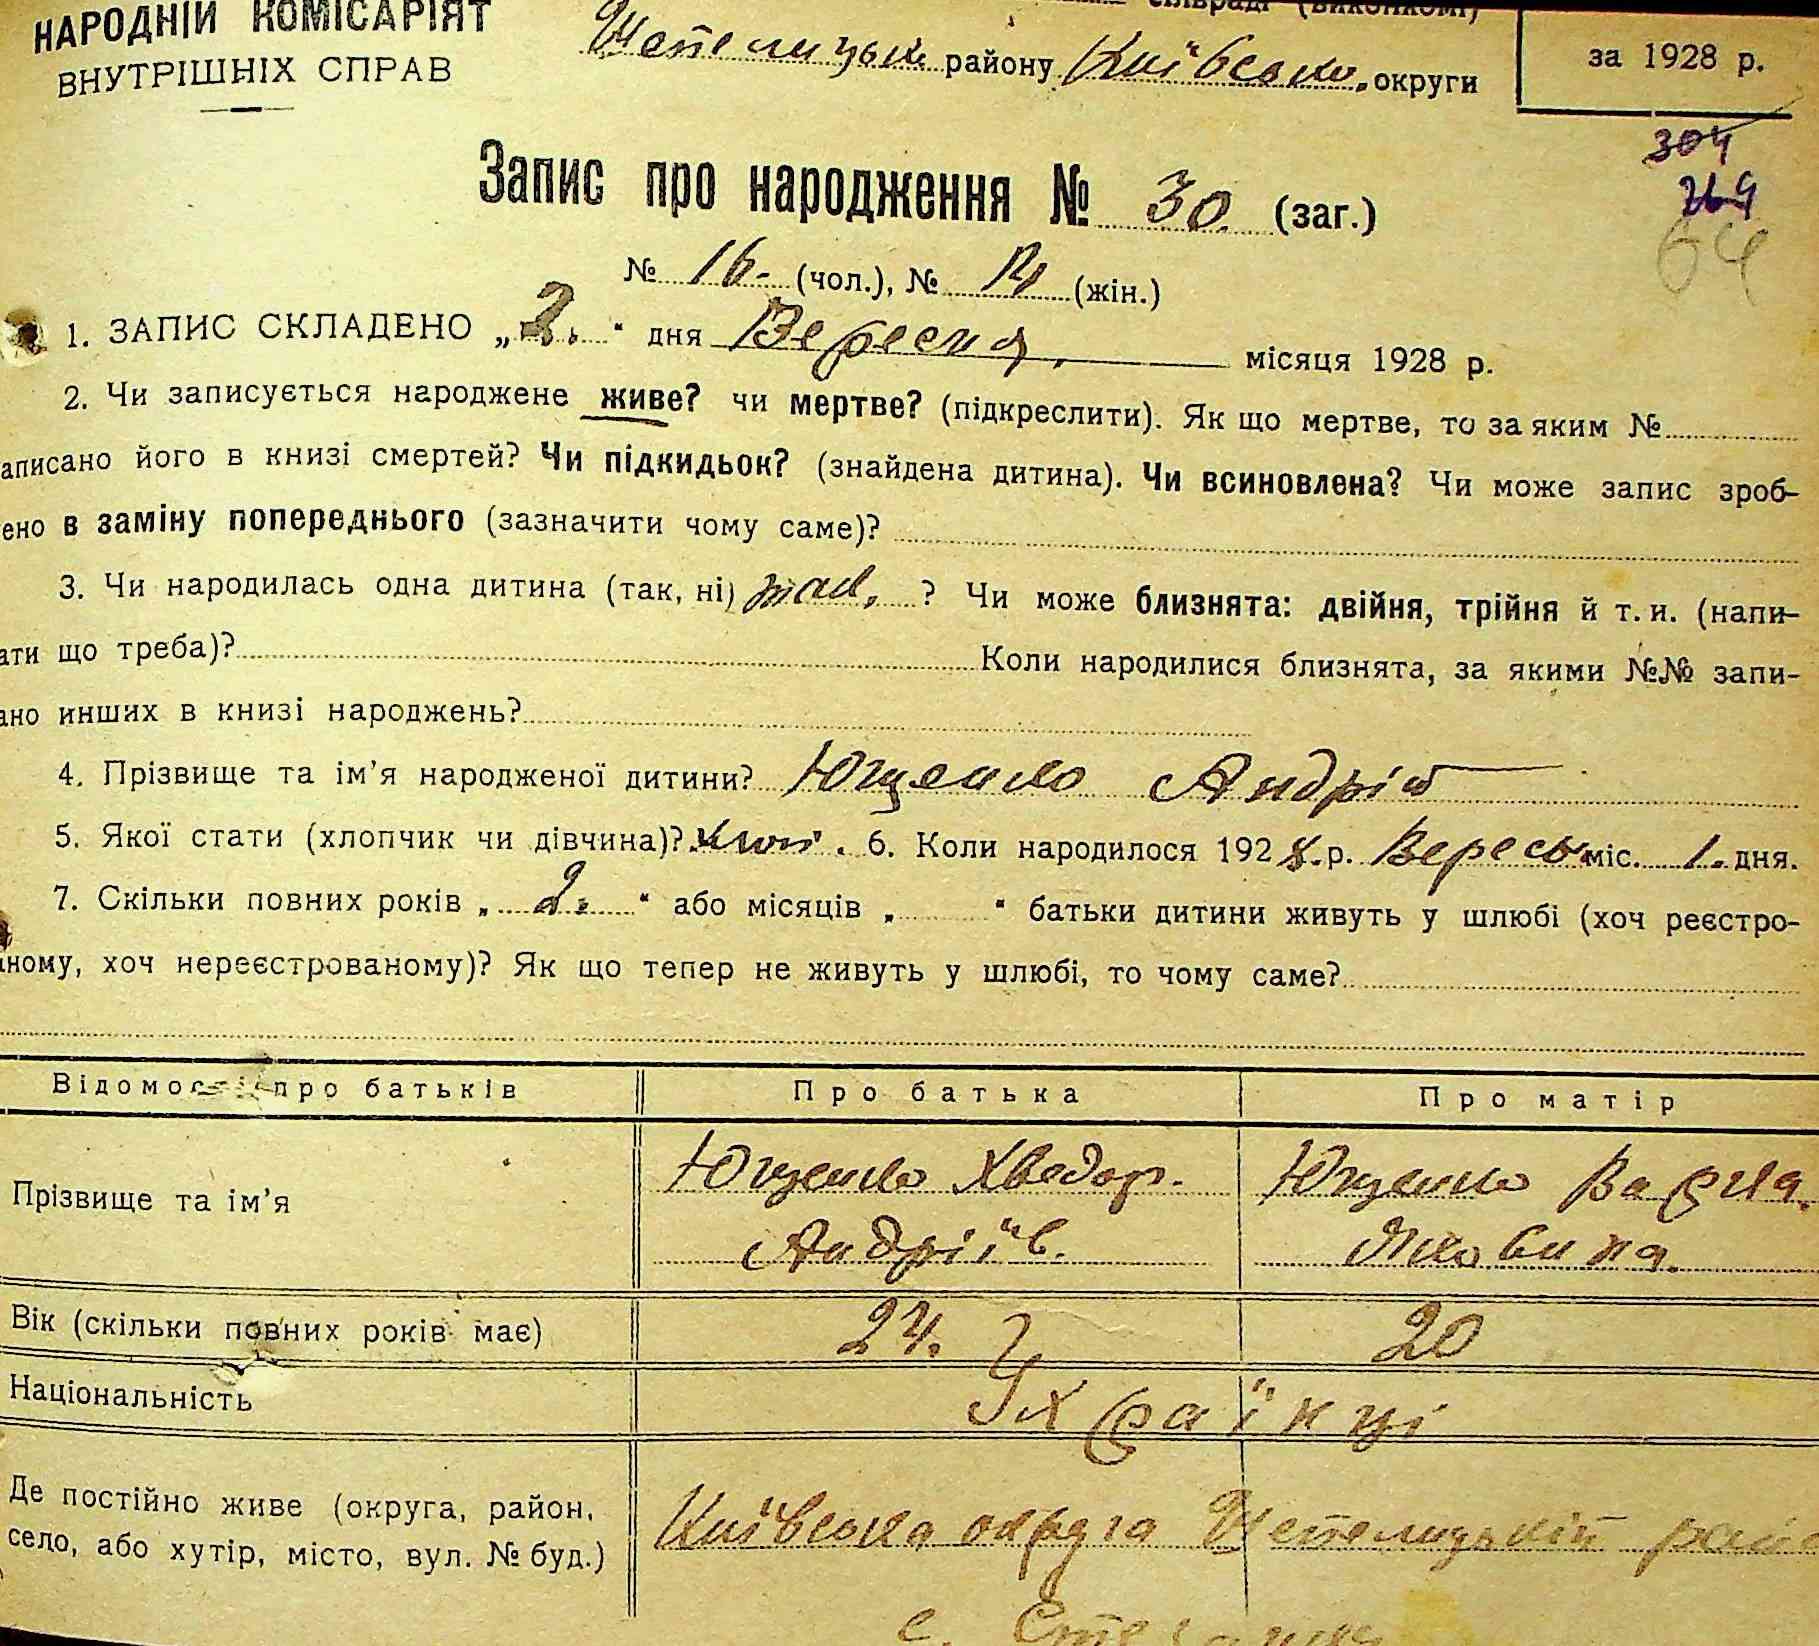 НАРОДНІЙ КОМІСАРІЯТ
ВНУТРІШНІХ СПРАВ
сільраді (виконкомі)
району Київської округи
за 1928 р.
304
269
64
Запис про народження № 30. (заг.)
№ 16. (чол.), № 14 (жін.)
1. ЗАПИС СКЛАДЕНО „2.“ дня Вересня, місяця 1928 р.
2. Чи записується народжене живе? чи мертве? (підкреслити). Як що мертве, то за яким №
аписано його в книзі смертей? Чи підкидьок? (знайдена дитина). Чи всиновлена? Чи може запис зроб-
ено в заміну попереднього (зазначити чому саме)?
3. Чи народилась одна дитина (так, ні) так, ? Чи може близнята: двійня, трійня й т. и. (напи-
ати що треба)? Коли народилися близнята, за якими №№ запи-
ано инших в книзі народжень?
4. Прізвище та ім'я народженої дитини? Ющенко Андрій
5. Якої стати (хлопчик чи дівчина)? хлоп. 6. Коли народилося 1928.р. Вересь міс. 1. дня.
7. Скільки повних років „2.“ або місяців „ “ батьки дитини живуть у шлюбі (хоч реєстро-
аному, хоч нереєстрованому)? Як що тепер не живуть у шлюбі, то чому саме?
Відомості про батьків Про батька Про матір
Прізвище та ім'я Ющенко Хведор. Ющенко Варка.
Андріїв. Яковина.
Вік (скільки повних років має) 24. 20
Національність Українці
Де постійно живе (округа, район, село, або хутір, місто, вул. № буд.) Київська округа Шепелицький рай
с.